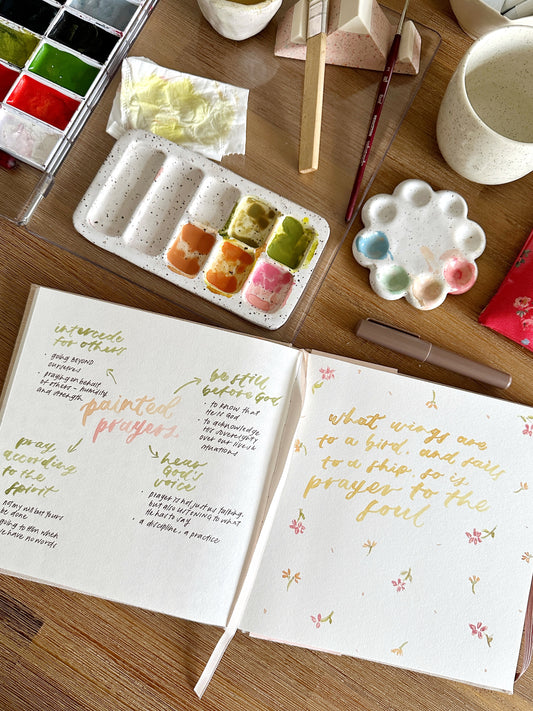 intercede
for others
• going BEYOND
ourselves
• praying on behalf
of others - humility
and strength
be still
before God
• to know that
He is God
• to acknowledge
His sovereignty
over our lives &
situations
painted
prayers
pray
according
to the
Spirit
not my will but Yours
be done
going to Him when
we have no words
hear
God's
voice
• prayer is not just us talking,
but also LISTENING to what
He has to say
• a discipline, a practice
what wings are
to a bird, and sails
to a ship, so is
prayer to the
soul